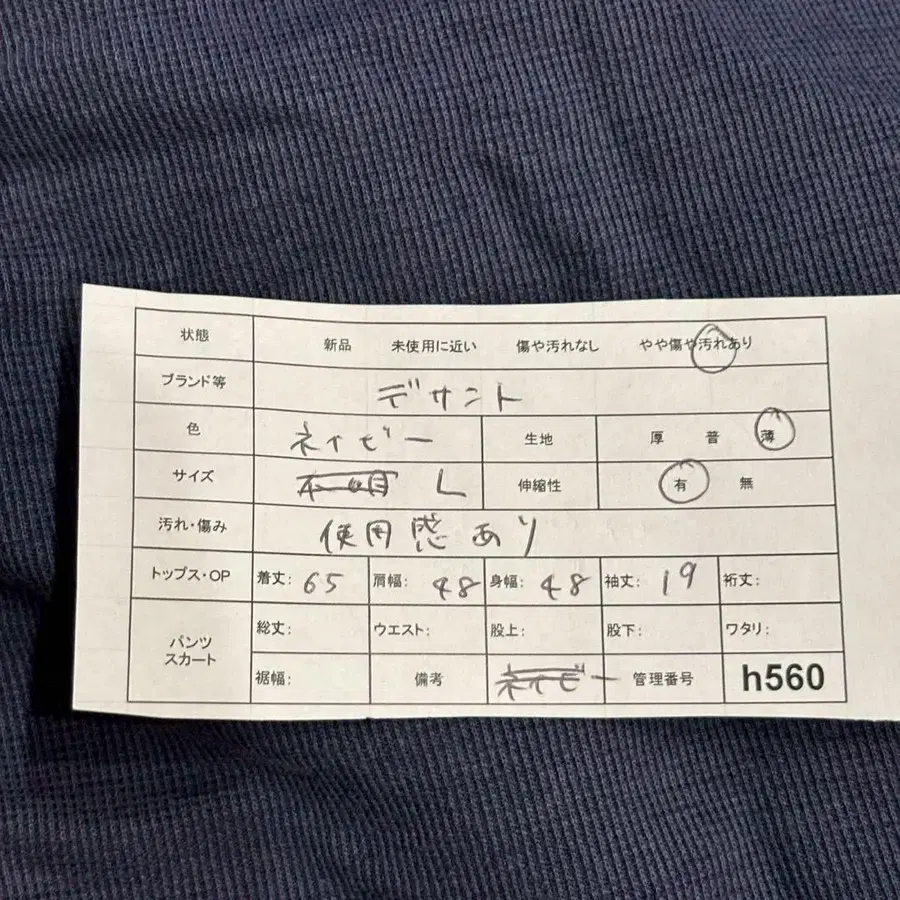 状態 新品 未使用に近い 傷や汚れなし やや傷や汚れあり
ブランド等 デサント
色 ネイビー 生地 厚 普 薄
サイズ 不明 L 伸縮性 有 無
汚れ・傷み 使用感あり
トップス・OP 着丈: 65 肩幅: 48 身幅: 48 袖丈: 19 裄丈:
パンツ スカート 総丈: ウエスト: 股上: 股下: ワタリ:
裾幅: 備考 ネイビー 管理番号 h560